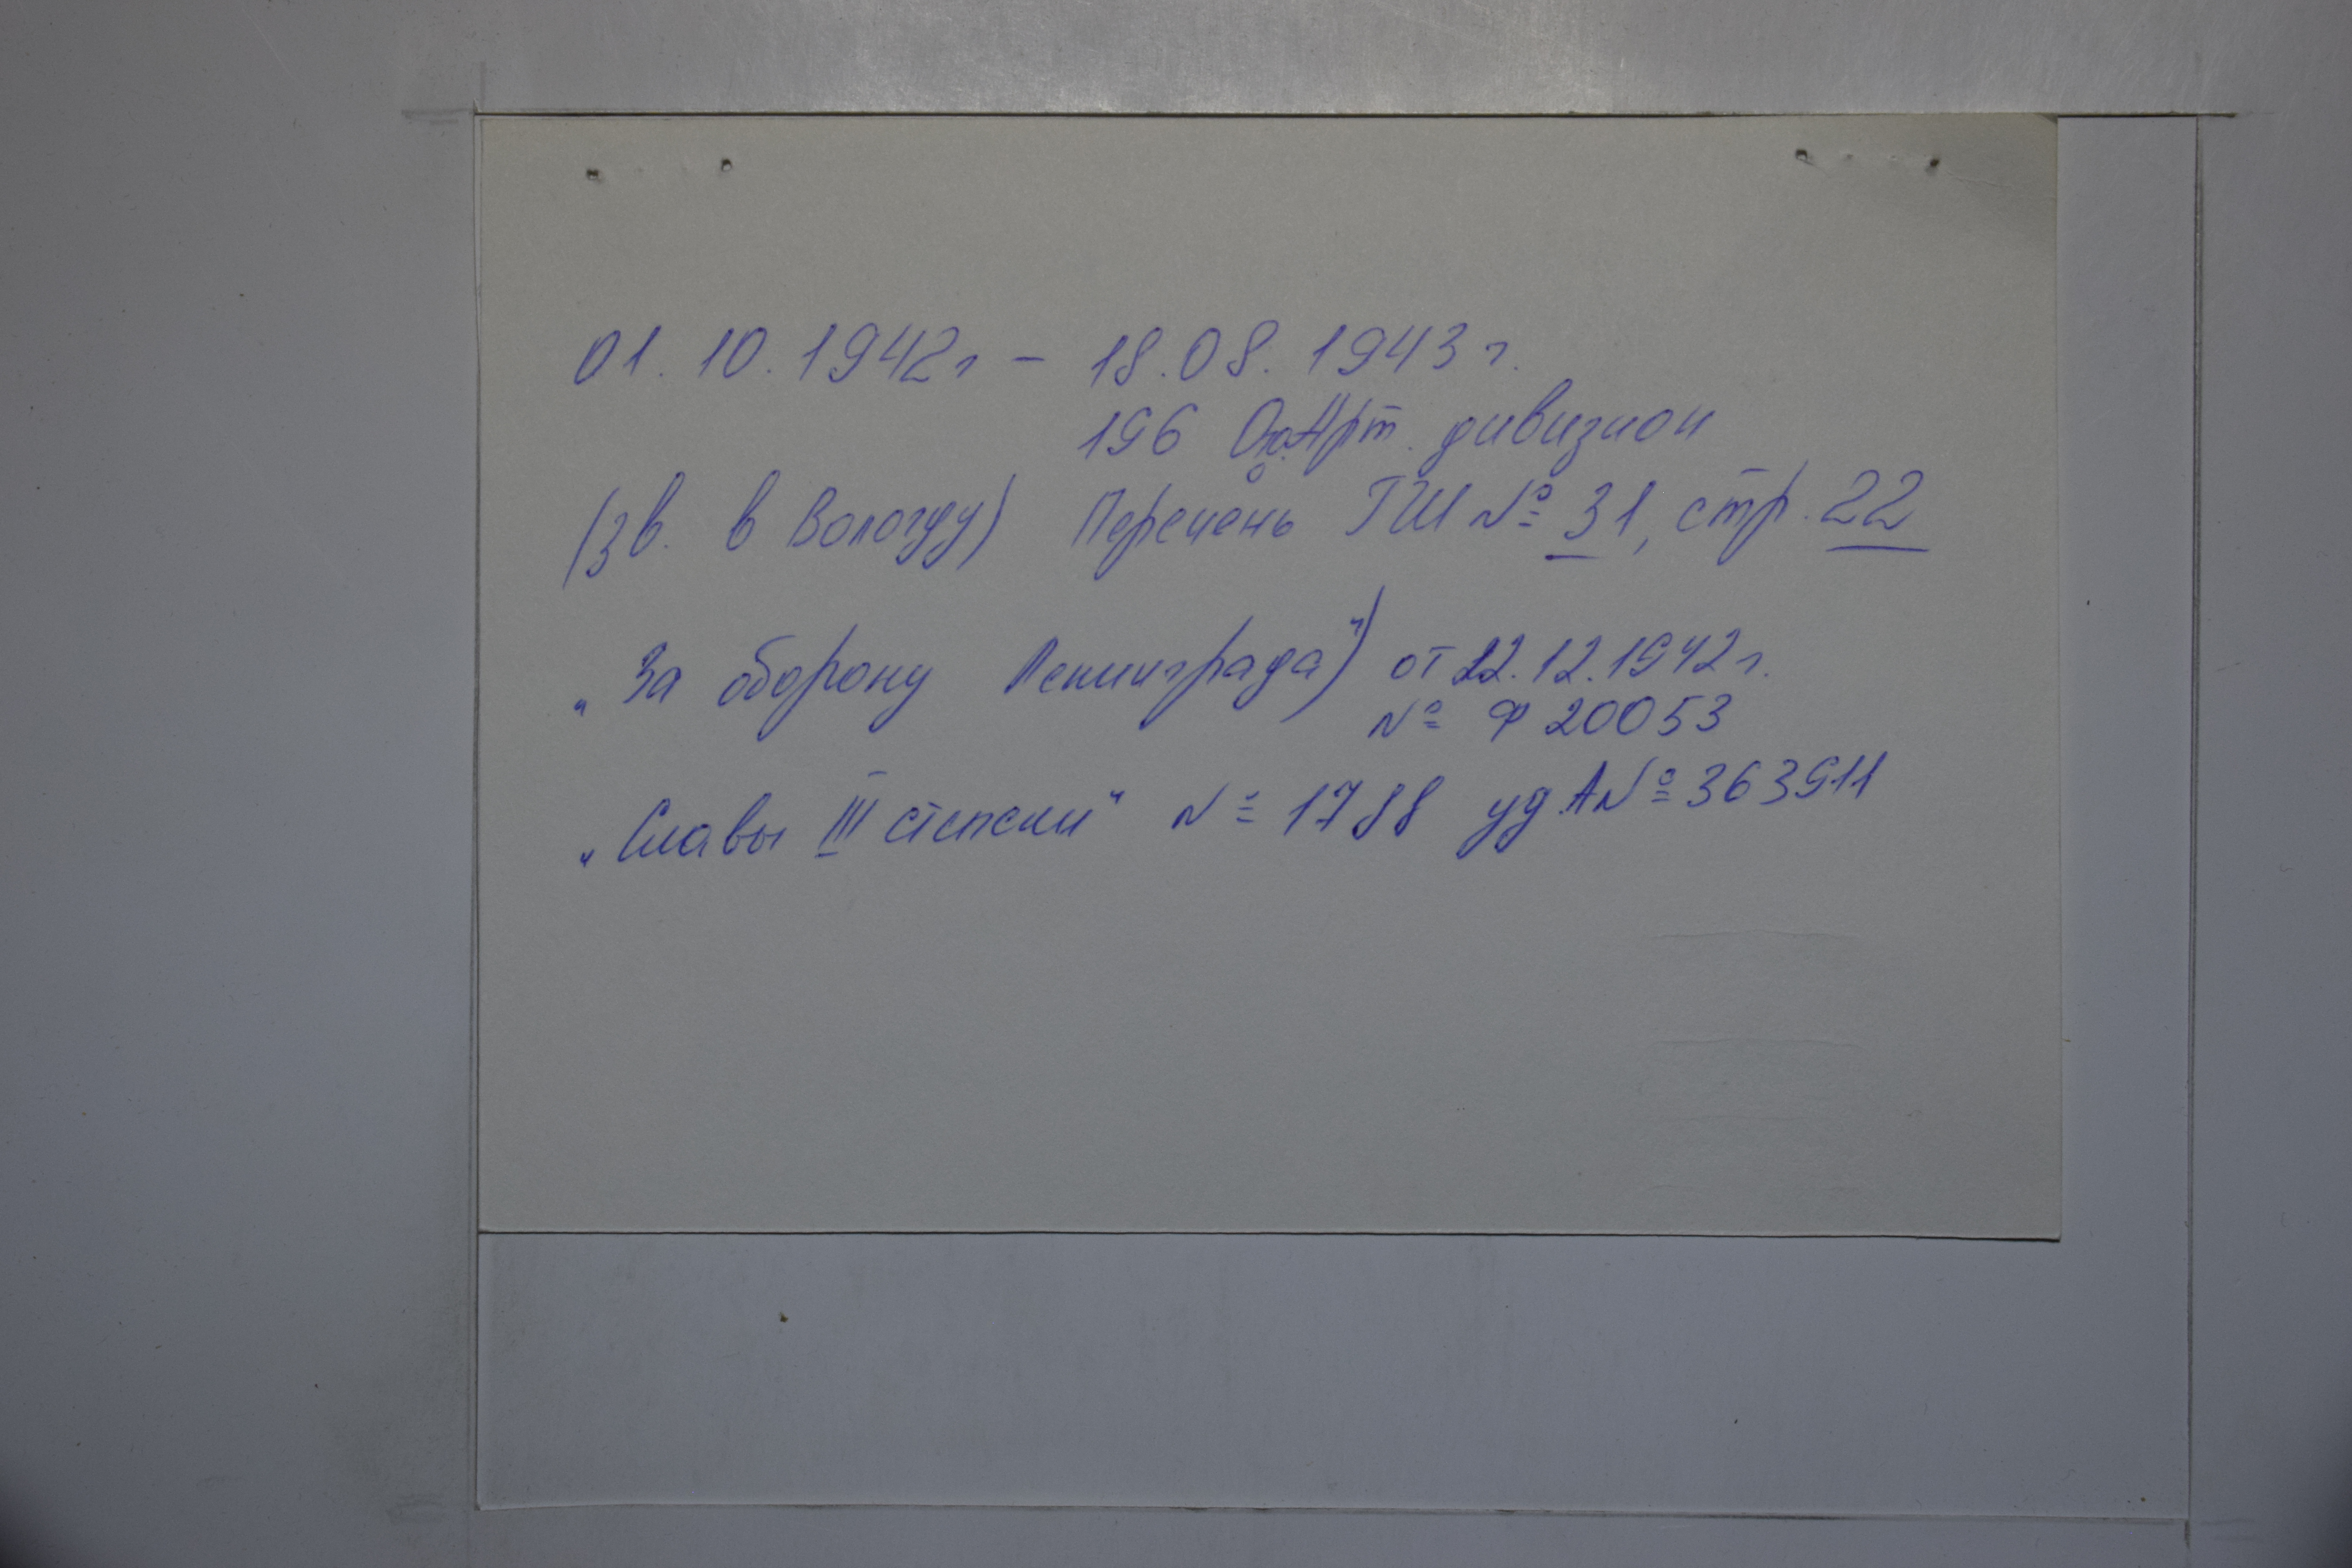 01.10.1942г – 18.08.1943г.
196 Арт. дивизион
(зв. в Вологду) Перечень ГШ № 31, стр. 22
„За оборону Ленинграда“) от 22.12.1942г.
№ Ф 20053
„Славы III степени“ № 1788 уд. А№ 363911